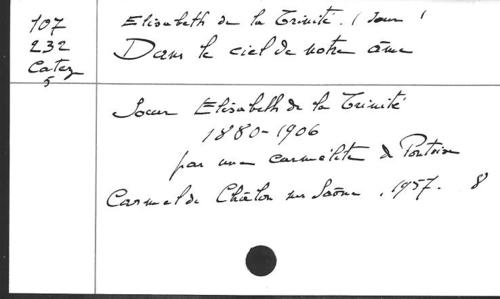 107
232
Catez
5
Elisabeth de la Trinité. (Soeur)
Dans le ciel de notre âme
Soeur Elisabeth de la Trinité
1880-1906
par une carmélite de Pontoise
Carmel de Châlon sur Saône, 1957. 8